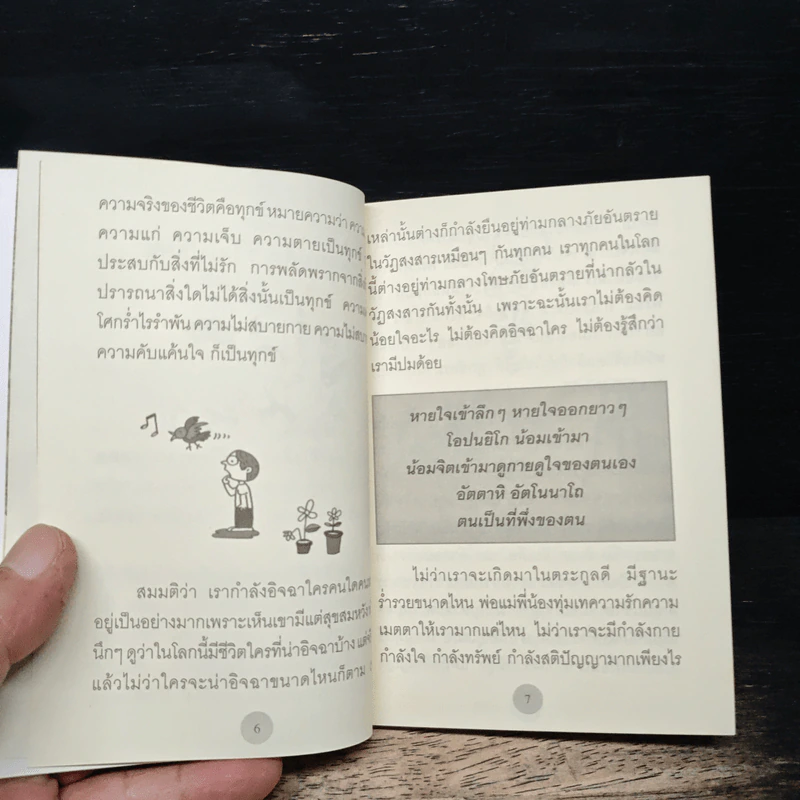 ความจริงของชีวิตคือทุกข์ หมายความว่า
ความแก่ ความเจ็บ ความตายเป็นทุกข์
ประสบกับสิ่งที่ไม่รัก การพลัดพรากจาก
ปรารถนาสิ่งใดไม่ได้สิ่งนั้นเป็นทุกข์
โศกร่ำไรรำพัน ความไม่สบายกาย
ความคับแค้นใจ ก็เป็นทุกข์
สมมติว่า เรากำลังอิจฉาใครคนใด
อยู่เป็นอย่างมากเพราะเห็นเขามีแต่สุขสมหวัง
นึกๆ ดูว่าในโลกนี้มีชีวิตใครที่น่าอิจฉาบ้าง
แล้วไม่ว่าใครจะน่าอิจฉาขนาดไหนก็ตาม
6
เหล่านั้นต่างก็กำลังยืนอยู่ท่ามกลางภัยอันตราย
ในวัฏสงสารเหมือนๆ กันทุกคน เราทุกคนในโลก
นี้ต่างอยู่ท่ามกลางโทษภัยอันตรายที่น่ากลัวใน
วัฏสงสารกันทั้งนั้น เพราะฉะนั้นเราไม่ต้องคิด
น้อยใจอะไร ไม่ต้องคิดอิจฉาใคร ไม่ต้องรู้สึกว่า
เรามีปมด้อย
หายใจเข้าลึกๆ หายใจออกยาวๆ
โอปนยิโก น้อมเข้ามา
น้อมจิตเข้ามาดูกายดูใจของตนเอง
อัตตาหิ อัตโนนาโถ
ตนเป็นที่พึ่งของตน
ไม่ว่าเราจะเกิดมาในตระกูลดี มีฐานะ
ร่ำรวยขนาดไหน พ่อแม่พี่น้องทุ่มเทความรักความ
เมตตาให้เรามากแค่ไหน ไม่ว่าเราจะมีกำลังกาย
กำลังใจ กำลังทรัพย์ กำลังสติปัญญามากเพียงไร
7